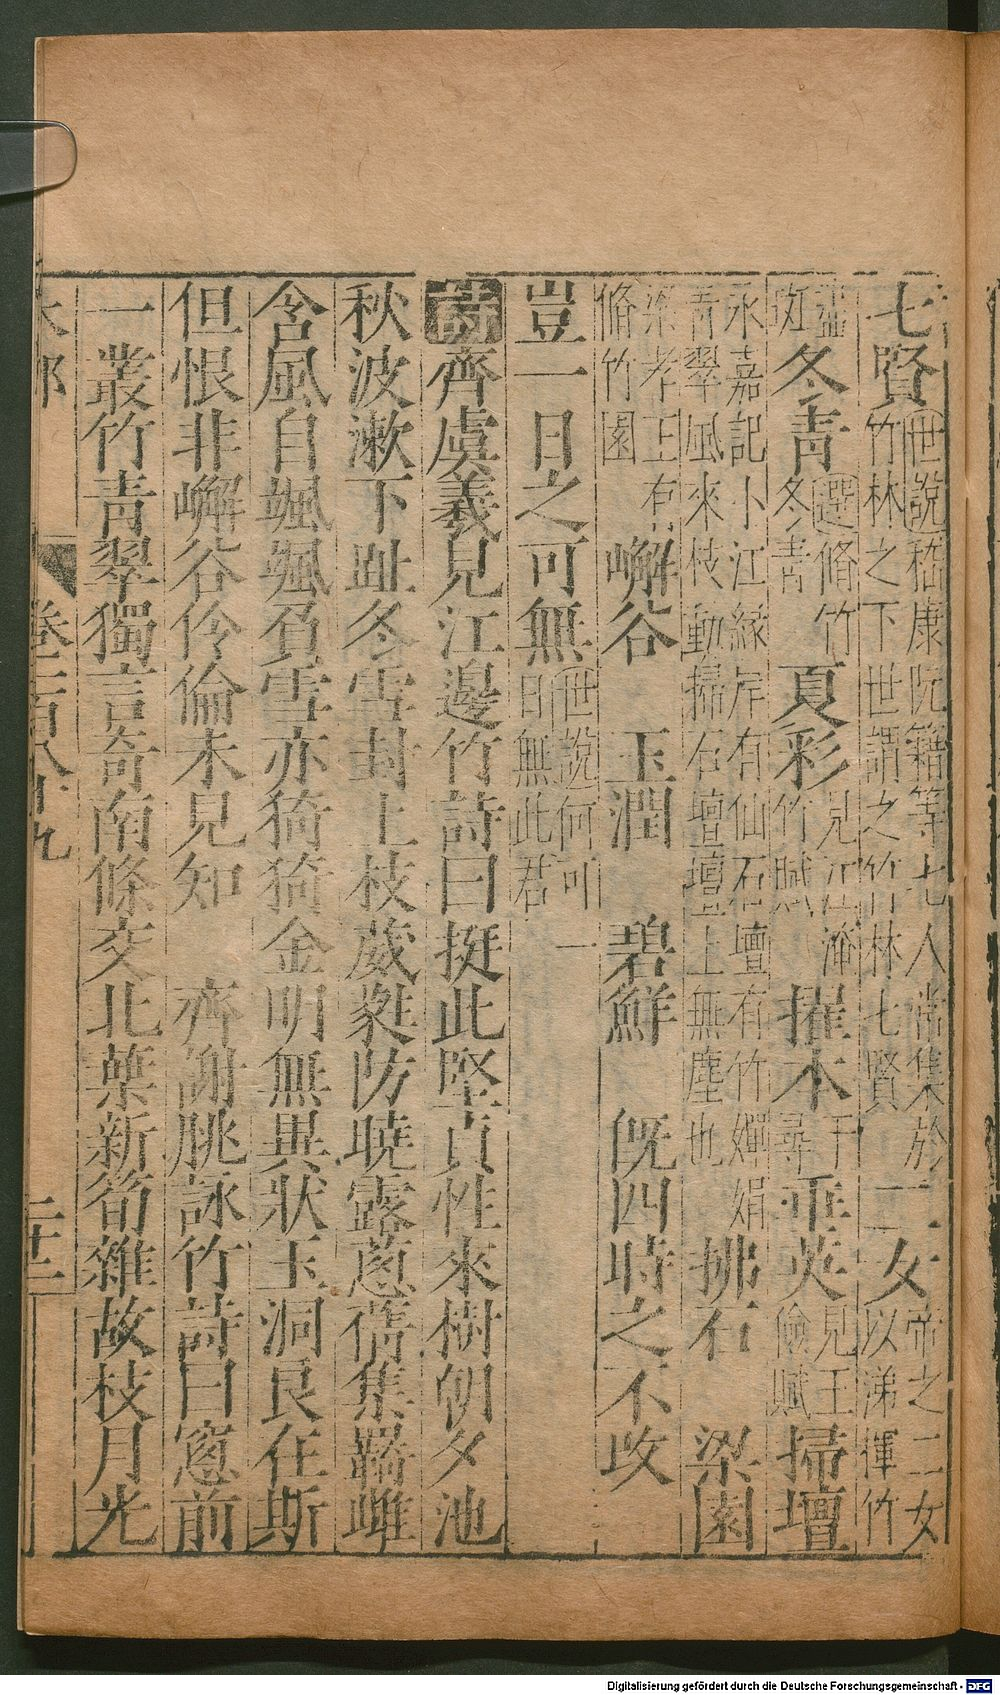 七賢世說嵇康阮籍等七人常集於竹林之下世謂之竹林七賢 二女帝之二女以涕揮竹
盡斑 冬青選脩竹冬青 夏彩見江淹竹賦 擢本于尋 垂英見王儉賦 掃壇
永嘉記小江緣岸有仙石壇有竹嬋娟青翠風來枝動掃石壇壇上無塵也 拂石 梁園
梁孝王有脩竹園 嶰谷 玉潤 碧鮮 旣四時之不改
豈一日之可無世說何可一日無此君
詩齊虞羲見江邊竹詩曰挺此堅貞性來樹朝夕池
秋波漱下趾冬雪封上枝葳蕤防曉露葱蒨集羇雌
含風自颯颯負雪亦猗猗金明無異狀玉洞良在斯
但恨非嶰谷伶倫未見知 齊謝朓詠竹詩曰窻前
一叢竹青翠獨言奇南條交北葉新筍雜故枝月光
木部 卷三百八十九 二十二
Digitalisierung gefördert durch die Deutsche Forschungsgemeinschaft - DFG